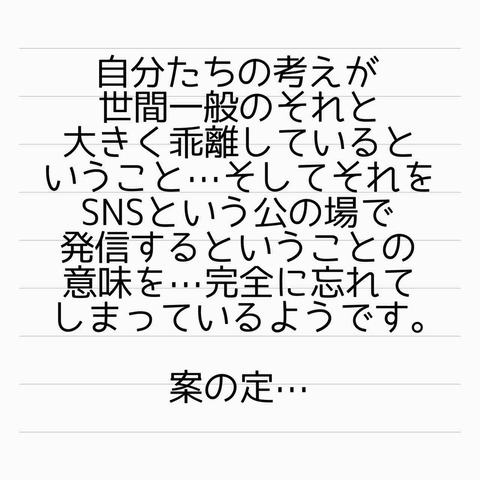 自分たちの考えが
世間一般のそれと
大きく乖離していると
いうこと…そしてそれを
SNSという公の場で
発信するということの
意味を…完全に忘れて
しまっているようです。
案の定…